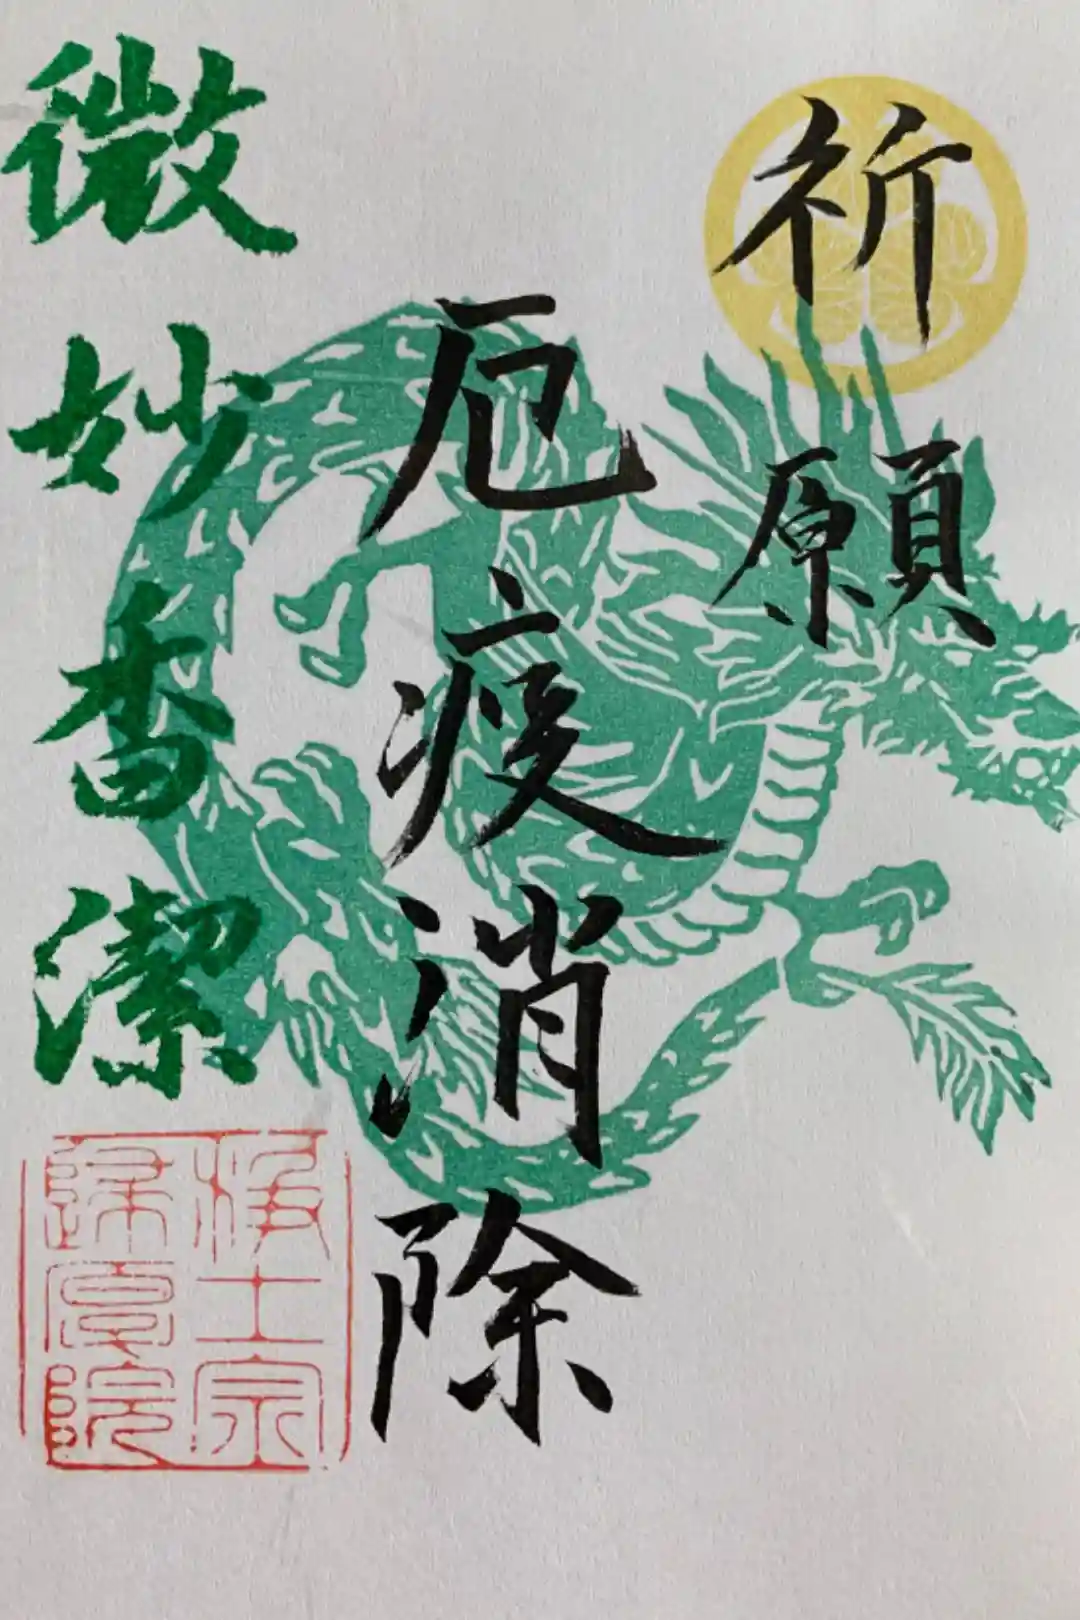 祈願
厄疫消除
微妙香潔
浄土宗
歸原院